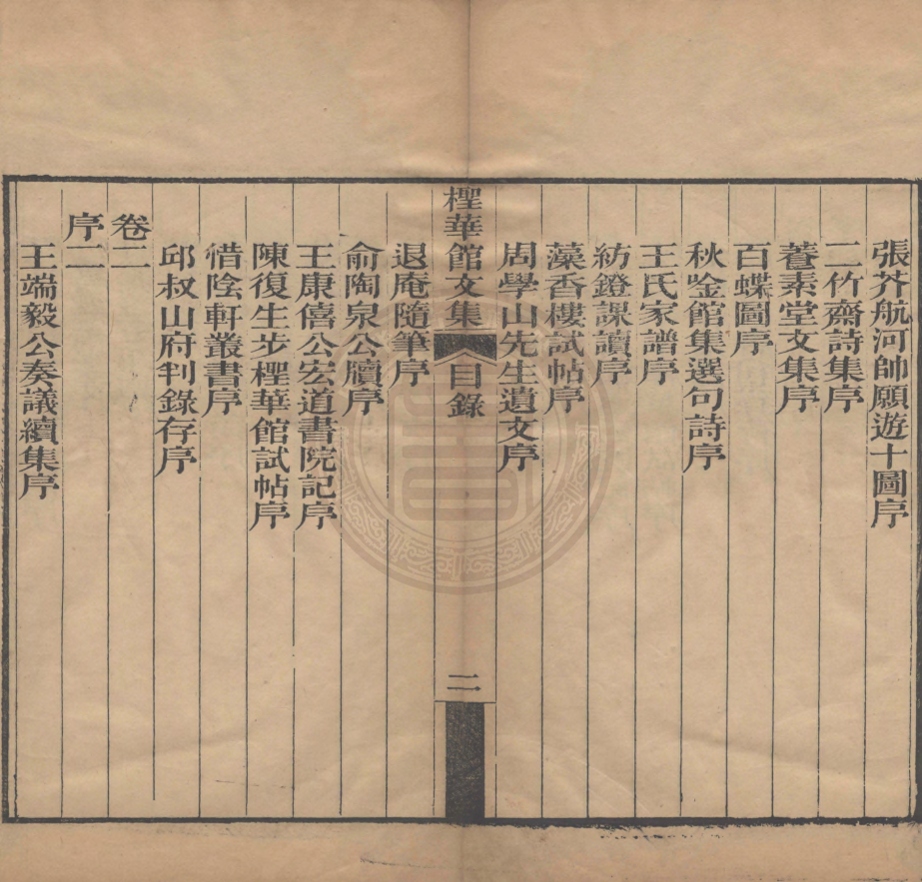 張芥航河帥願遊十圖序
二竹齋詩集序
養素堂文集序
百蝶圖序
秋唫館集選句詩序
王氏家譜序
紡鐙課讀序
藻香樓試帖序
周學山先生遺文序
檉華館文集 目錄 二
退庵隨筆序
俞陶泉公牘序
王康僖公宏道書院記序
陳復生步檉華館試帖序
惜陰軒叢書序
邱叔山府判錄存序
卷二
序二
王端毅公奏議續集序